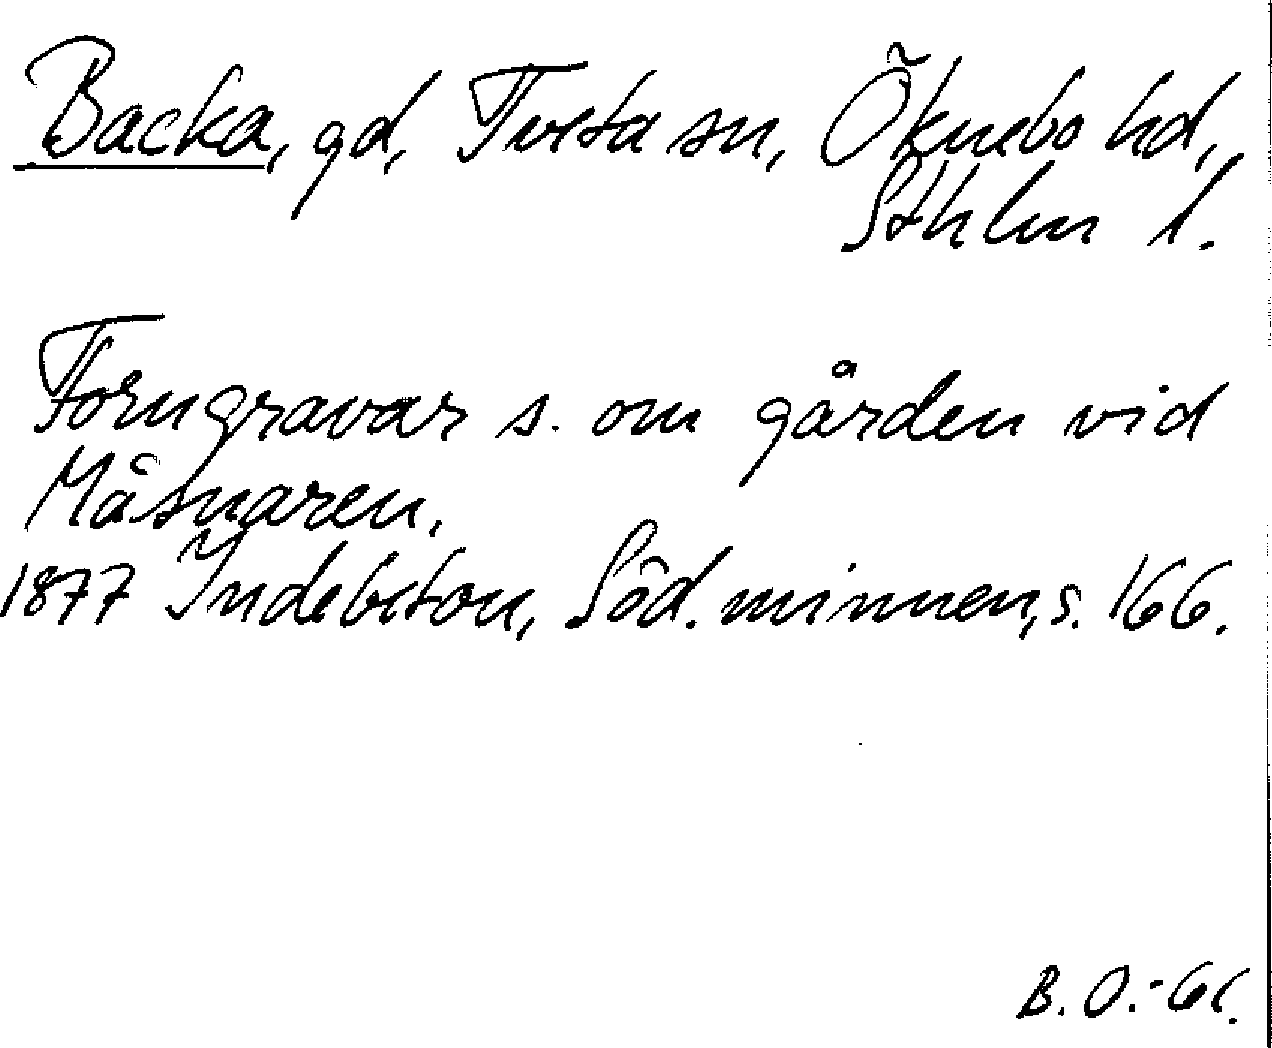 Backa, gd, Tveta sn, Öknebo hd,
Sthlm l.
Forngravar s. om gården vid
Måsnaren.
1877 Indebetou, Söd. minnen, s. 166.
B. O. -61.